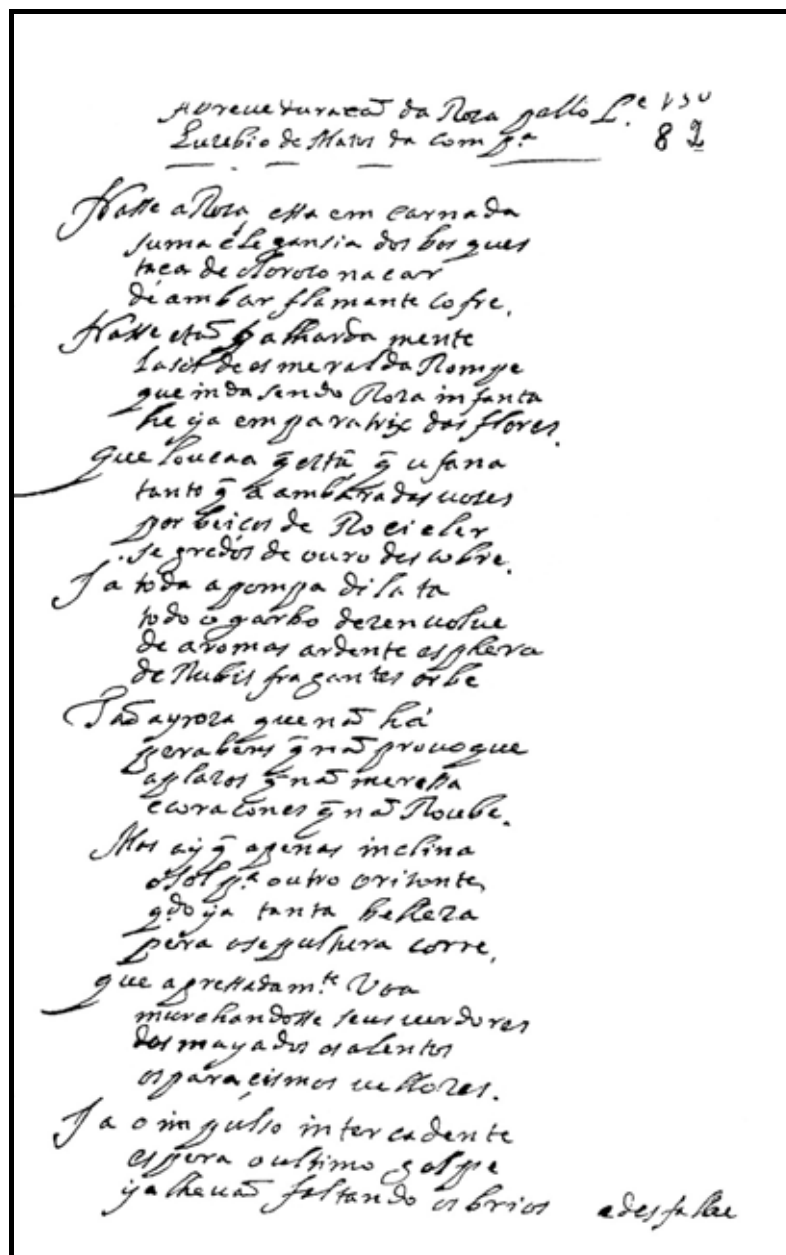 A breue duraçaõ da Roza pello P.e
Euzebio de Matos da Comp.a
82
Nasse a Roza, essa em carnada
suma elegansia dos bosques
taça de oloroso nacar
de ambar flamante cofre.
Nasse e taõ galharda mente
de esmeralda Rompe
que inda sendo Roza infanta
he ja emparatrix das flores.
Que loucaa q̃ está q̃ ufana
tanto q̃ a ambaradas uozes
por beiços de Rocicler
segredos de ouro descobre.
Ja toda a pompa dilata
todo o garbo dezenuolue
de aromas ardente esphera
de Rubis fragantes orbe
Taõ ayroza que naõ há
parabens q̃ naõ prouoque
aplazos q̃ naõ meressa
e coraçones q̃ naõ Roube.
Mas ay q̃ apenas inclina
o sol p.a outro orizonte,
q.do ja tanta belleza
pera o sepulthura corre.
que apressadam.te Voa
murchandosse seus uerdores
desmayados os alentos
os paracismos uellozes.
Ja o impulso intercadente
espera o ultimo golpe
ja lhe uaõ faltando os brios